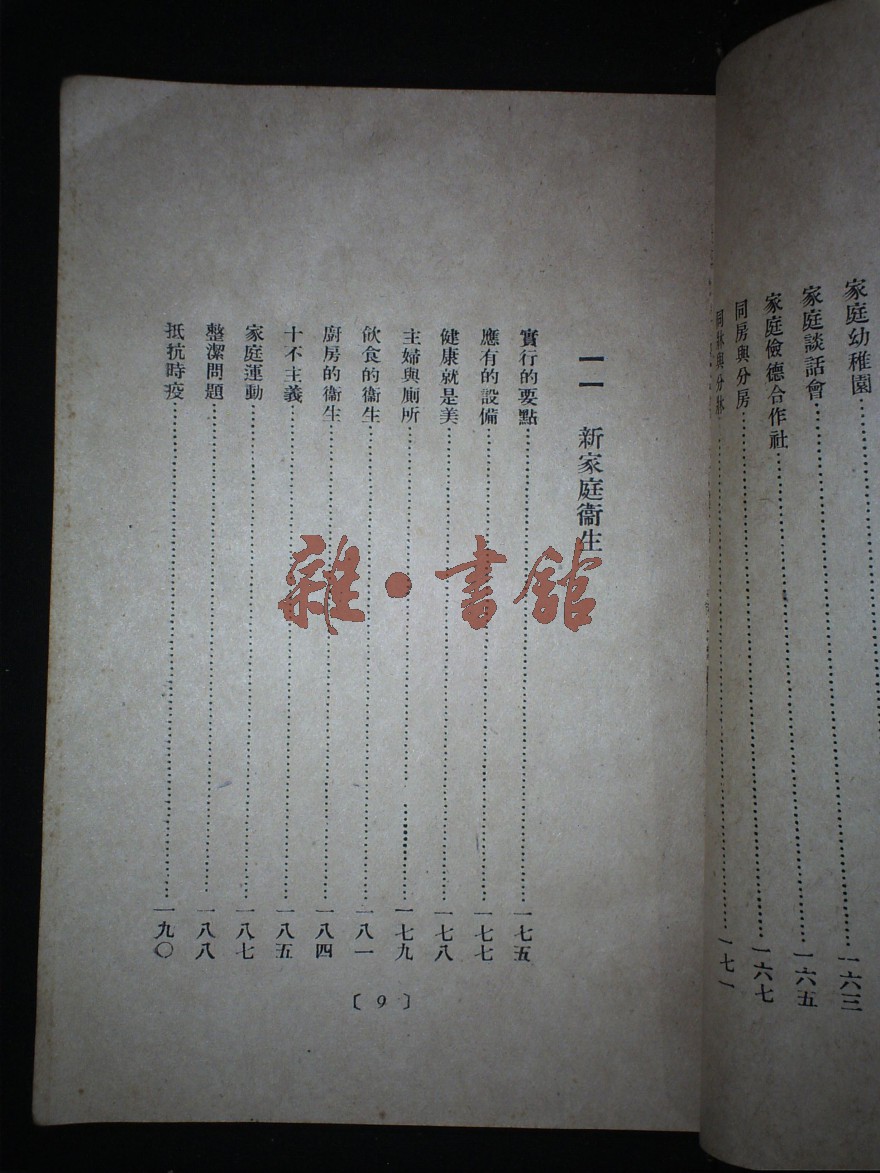 家庭幼稚園……一六三
家庭談話會……一六五
家庭儉德合作社……一六七
同房與分房
同牀與分牀……一七一
一一 新家庭衞生
實行的要點……一七五
應有的設備……一七七
健康就是美……一七八
主婦與廁所……一七九
飲食的衞生……一八一
廚房的衞生……一八四
十不主義……一八五
家庭運動……一八七
整潔問題……一八八
抵抗時疫……一九〇
〔9〕
雜·書舘